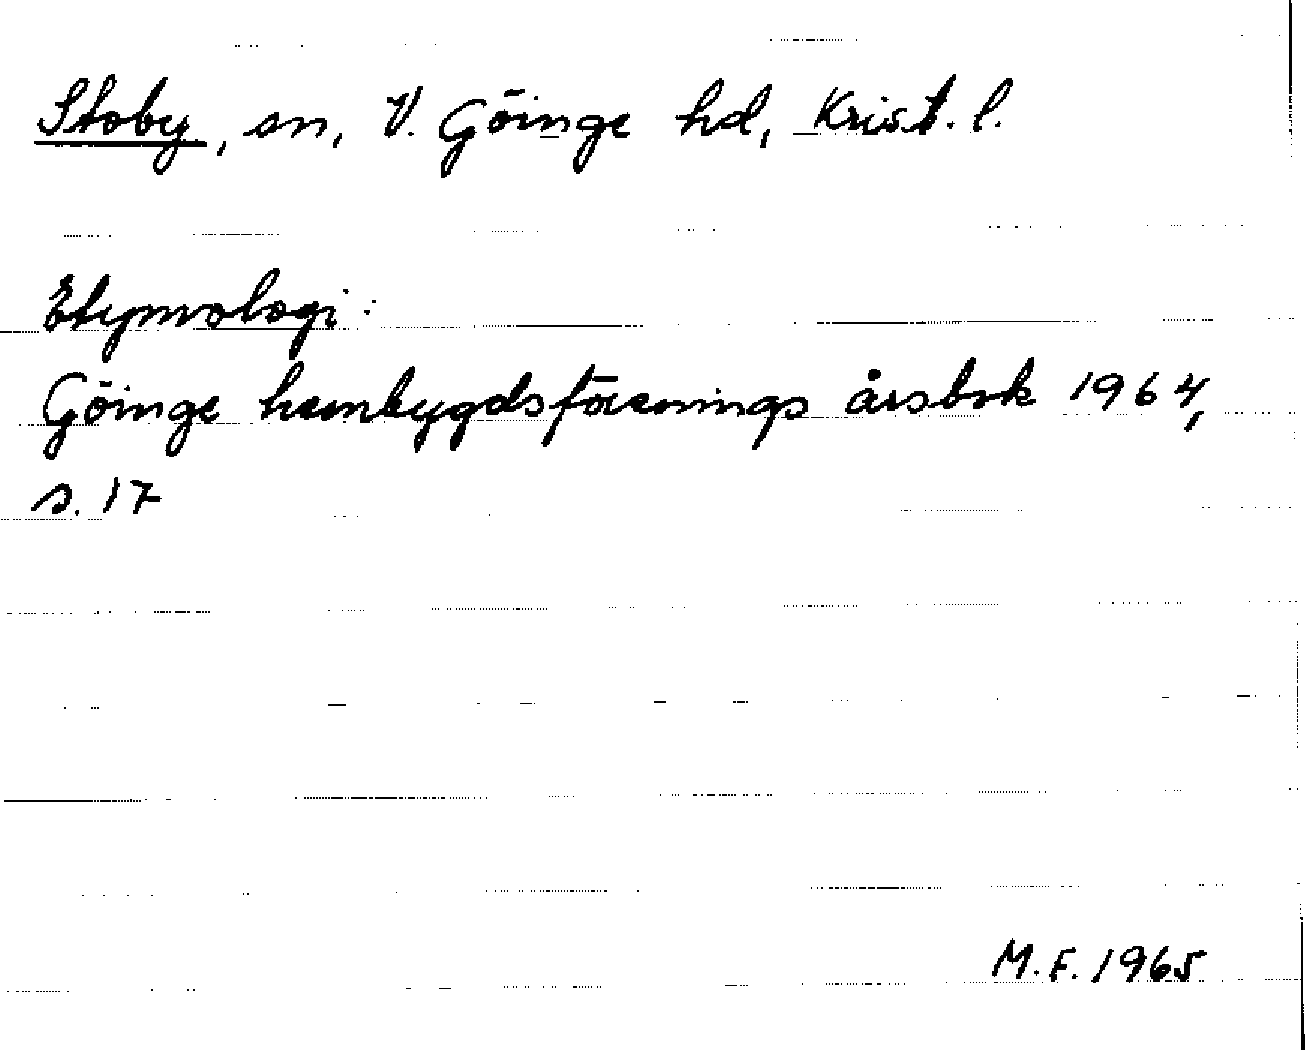 Stoby, sn, V. Göinge hd, Krist. l.
Etymologi:
Göinge hembygdsförenings årsbok 1964,
s. 17
M.F. 1965